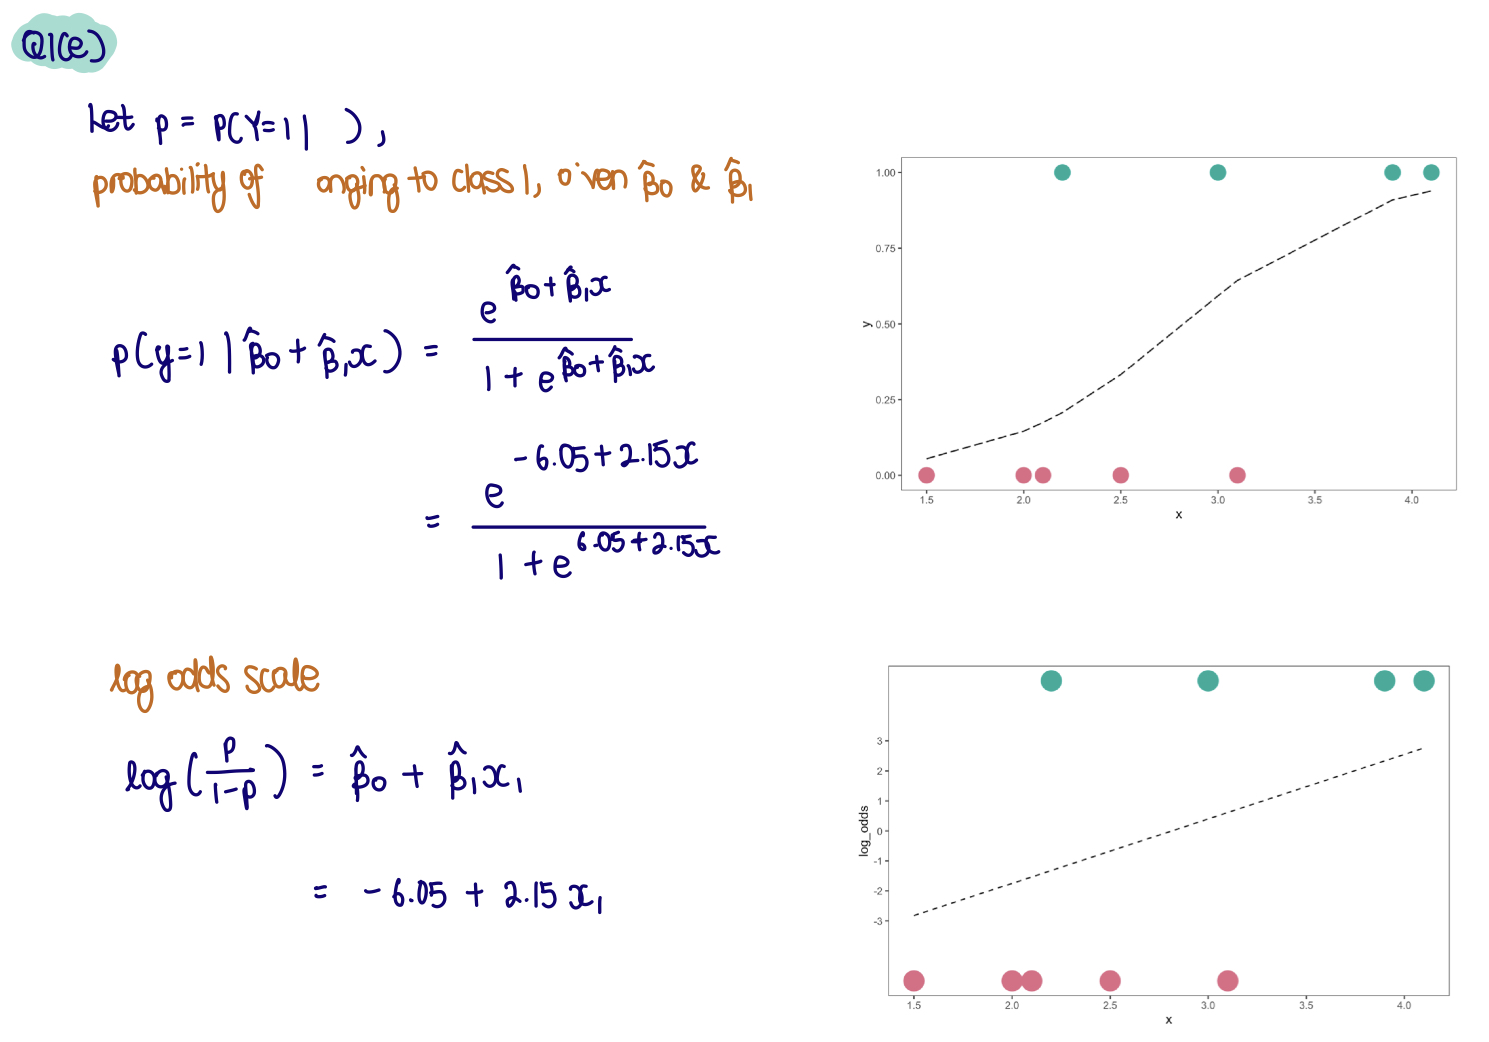 Q1(e)
Let p = P(Y=1 | ),
probability of onging to class 1, iven β̂0 & β̂1
p(y=1 | β̂0 + β̂1x) = e^(β̂0 + β̂1x) / (1 + e^(β̂0 + β̂1x))
= e^(-6.05 + 2.15x) / (1 + e^(6.05 + 2.15x))
log odds scale
log(p / (1-p)) = β̂0 + β̂1x1
= -6.05 + 2.15x1
1.00
0.75
0.50
0.25
0.00
y
1.5 2.0 2.5 3.0 3.5 4.0
x
3
2
1
0
-1
-2
-3
log_odds
1.5 2.0 2.5 3.0 3.5 4.0
x